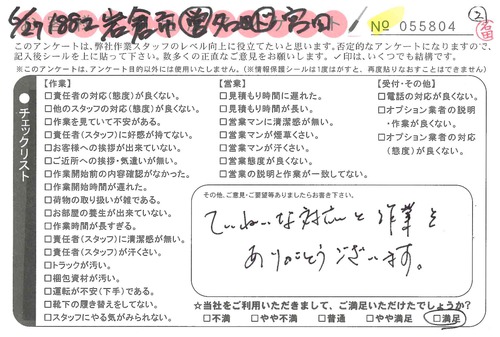 6/27 1882 岩倉市 曽我 宮田
No 055804
②
このアンケートは、弊社作業スタッフのレベル向上に役立てたいと思います。否定的なアンケートになりますので、
記入後シールを上に貼って下さい。数多くの正直なご意見をお願いします。✓印は、いくつでも結構です。
※このアンケートは、アンケート目的以外には使用いたしません。(※情報保護シールは1度はがすと、再度貼りなおすことはできません)
チェックリスト
【作業】
□責任者の対応(態度)が良くない。
□他のスタッフの対応(態度)が良くない。
□作業を見ていて不安がある。
□責任者(スタッフ)に好感が持てない。
□お客様への挨拶が出来ていない。
□ご近所への挨拶・気遣いが無い。
□作業開始前の内容確認がなかった。
□作業開始時間が遅れた。
□荷物の取り扱いが雑である。
□お部屋の養生が出来ていない。
□作業時間が長すぎる。
□責任者(スタッフ)に清潔感が無い。
□責任者(スタッフ)が汗くさい。
□トラックが汚い。
□梱包資材が汚い。
□運転が不安(下手)である。
□靴下の履き替えをしてない。
□スタッフにやる気がみられない。
【営業】
□見積もり時間に遅れた。
□見積もり時間が長い。
□営業マンに清潔感が無い。
□営業マンが煙草くさい。
□営業マンが汗くさい。
□営業態度が良くない。
□営業の説明と作業が一致してない。
【受付・その他】
□電話の対応が良くない。
□オプション業者の説明
・作業が良くない。
□オプション業者の対応
(態度)が良くない。
その他、ご意見・ご要望等ありましたらお書き下さい。
ていねいな対応と作業を
ありがとうございます。
☆当社をご利用いただきまして、ご満足いただけたでしょうか?
□不満 □やや不満 □普通 □やや満足 □満足